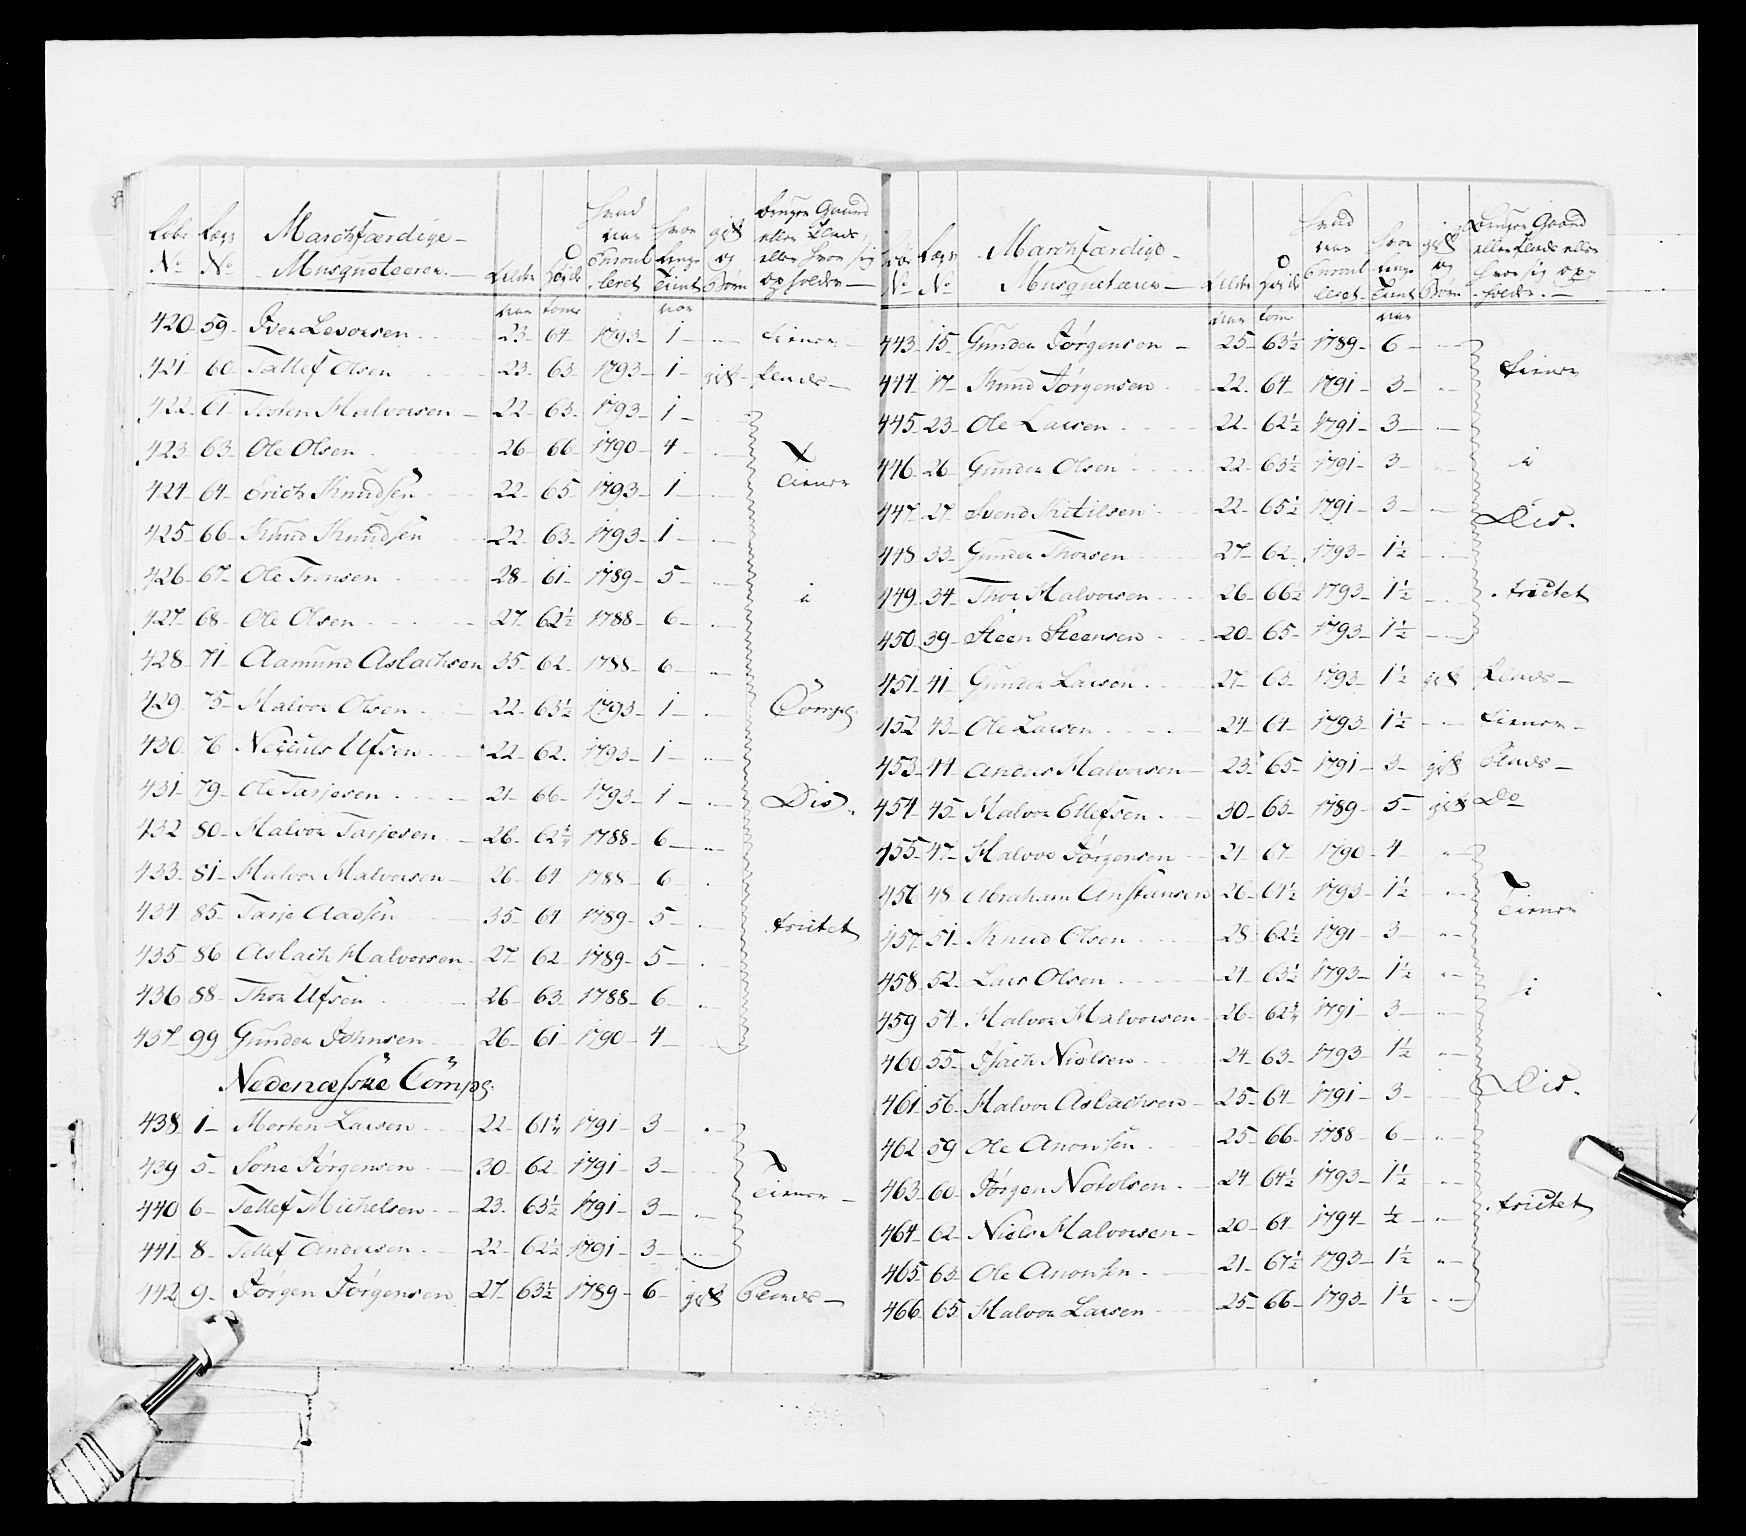 Løbe No Lægs No Marchfærdige Musqueteerer Alder Høide hvad aar Enroulleret hvor lenge Tient gift og Børn bruger Gaard eller Plads, eller hvor sig opholder
aar tomr aar
420 59 Iver Levorsen 23 64 1793 1 tiener
421 60 Tallef Olsen 23 63 1793 1 gift Plads
422 61 Tosten Halvorsen 22 63 1793 1
423 63 Ole Olsen 26 66 1790 4
424 64 Erich Knudsen 22 65 1793 1 tiener
425 66 Knud Knudsen 22 63 1793 1
426 67 Ole Tronsen 28 61 1789 5 i
427 68 Ole Olsen 27 62½ 1788 6
428 71 Aamund Aslachsen 35 62 1788 6
429 75 Halvor Olsen 22 63½ 1793 1 Comp:
430 76 Ufsen 22 62 1793 1
431 79 Ole Tarjesen 21 66 1793 1 Dis
432 80 Halvor Tarjesen 26 62¼ 1788 6
433 81 Halvor Halvorsen 26 64 1788 6
434 85 Tarje Aadsen 35 64 1789 5 trictet
435 86 Aslach Halvorsen 27 62 1789 5
436 88 Thor Ufsen 26 63 1788 6
437 99 Gunder Johnsen 26 61 1790 4
Nedenæsske Comp:
438 1 Morten Larsen 22 61¼ 1791 3
439 5 Söne Jørgensen 30 62 1791 3 tiener
440 6 Tellef Michelsen 23 63½ 1791 3
441 8 Tellef Andersen 22 62½ 1791 3
442 9 Jørgen Jørgensen 27 63½ 1789 6 gift Plads
Løbe No Lægs No Marchfærdige Musqueterer Alder Høide hvad aar Enroulleret hvor lenge Tient gift og Børn bruger Gaard eller Plads eller hvor sig opholder
aar tomr aar
443 15 Gunder Jørgensen 25 63½ 1789 6
444 17 Knud Jørgensen 22 64 1791 3 tiener
445 23 Ole Larsen 22 62½ 1791 3
446 26 Gunder Olsen 22 63½ 1791 3 i
447 27 Svend Kitilsen 22 65½ 1791 3 Dis
448 33 Gunder Thorsen 27 62 1793 1½
449 34 Thor Halvorsen 26 66½ 1793 1½ trictet
450 39 Steen Steensen 20 65 1793 1½
451 41 Gunder Larsen 27 63 1793 1½ gift Plads
452 43 Ole Larsen 24 64 1793 1½ tiener
453 44 Anders Halvorsen 23 65 1791 3 gift Plads
454 45 Halvor Ellefsen 30 63 1789 5 gift Do
455 47 Halvor Jørgensen 21 67 1790 4
456 48 Abraham Anstensen 26 61½ 1793 1½ Tiener
457 51 Knud Olsen 28 62½ 1791 3
458 52 Lars Olsen 21 63½ 1793 1½ i
459 54 Halvor Halvorsen 26 62¼ 1791 3
460 55 Isach Nielsen 24 63 1793 1½
461 56 Halvor Aslachsen 25 64 1791 3 Dis
462 59 Ole Anonsen 25 66 1788 6
463 60 Jørgen Notolsen 24 64½ 1793 1½
464 62 Niels Halvorsen 20 64 1794 ½ trictet
465 63 Ole Anonsen 21 67½ 1793 1½
466 65 Halvor Larsen 25 66 1793 1½